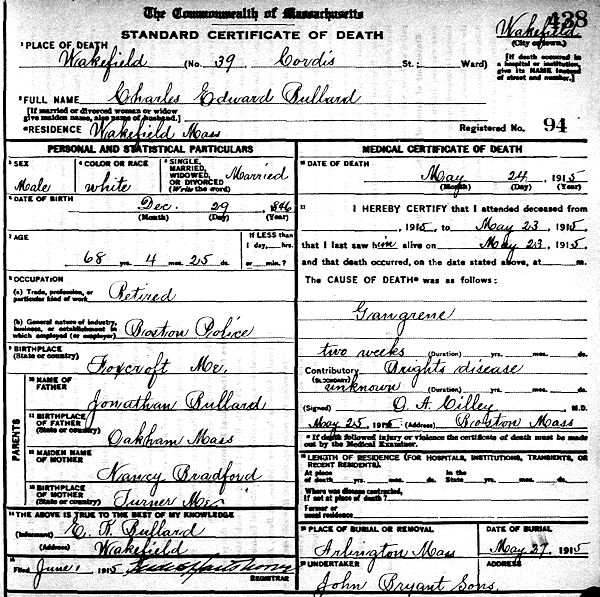 The Commonwealth of Massachusetts
438
STANDARD CERTIFICATE OF DEATH
Wakefield
(City or town.)
1 PLACE OF DEATH
Wakefield (No. 39 Cordis St.; Ward)
[If death occurred in a hospital or institution, give its NAME instead of street and number.]
2 FULL NAME Charles Edward Bullard
[If married or divorced woman or widow give maiden name, also name of husband.]
RESIDENCE Wakefield Mass
Registered No. 94
PERSONAL AND STATISTICAL PARTICULARS
3 SEX
Male
4 COLOR OR RACE
white
5 SINGLE, MARRIED, WIDOWED, OR DIVORCED (Write the word)
Married
6 DATE OF BIRTH
Dec. 29 1846
(Month) (Day) (Year)
7 AGE
68 yrs. 4 mos. 25 ds.
If LESS than 1 day,...hrs. or ...min.?
8 OCCUPATION
(a) Trade, profession, or particular kind of work Retired
(b) General nature of industry, business, or establishment in which employed (or employer) Boston Police
9 BIRTHPLACE
(State or country)
Foxcroft Me.
PARENTS
10 NAME OF FATHER
Jonathan Bullard
11 BIRTHPLACE OF FATHER
(State or country)
Oakham Mass
12 MAIDEN NAME OF MOTHER
Nancy Bradford
13 BIRTHPLACE OF MOTHER
(State or country)
Turner Me.
14 THE ABOVE IS TRUE TO THE BEST OF MY KNOWLEDGE
(Informant) Bullard
(Address) Wakefield
15 Filed June 1 1915
REGISTRAR
MEDICAL CERTIFICATE OF DEATH
16 DATE OF DEATH
May 24, 1915
(Month) (Day) (Year)
17 I HEREBY CERTIFY that I attended deceased from
, 1915, to May 23, 1915,
that I last saw him alive on May 23, 1915,
and that death occurred, on the date stated above, at m.
The CAUSE OF DEATH* was as follows:
Gangrene
two weeks (Duration) yrs. mos. ds.
Contributory Brights disease
(SECONDARY)
unknown (Duration) yrs. mos. ds.
(Signed) O. A. Cilley M.D.
May 25, 1915 (Address) Boston Mass
* If death followed injury or violence the certificate of death must be made out by the Medical Examiner.
18 LENGTH OF RESIDENCE (FOR HOSPITALS, INSTITUTIONS, TRANSIENTS, OR RECENT RESIDENTS).
At place of death yrs. mos. ds. In the State yrs. mos. ds.
Where was disease contracted, if not at place of death?
Former or usual residence
19 PLACE OF BURIAL OR REMOVAL
Arlington Mass
DATE OF BURIAL
May 27, 1915
20 UNDERTAKER
John Bryant Sons.
ADDRESS